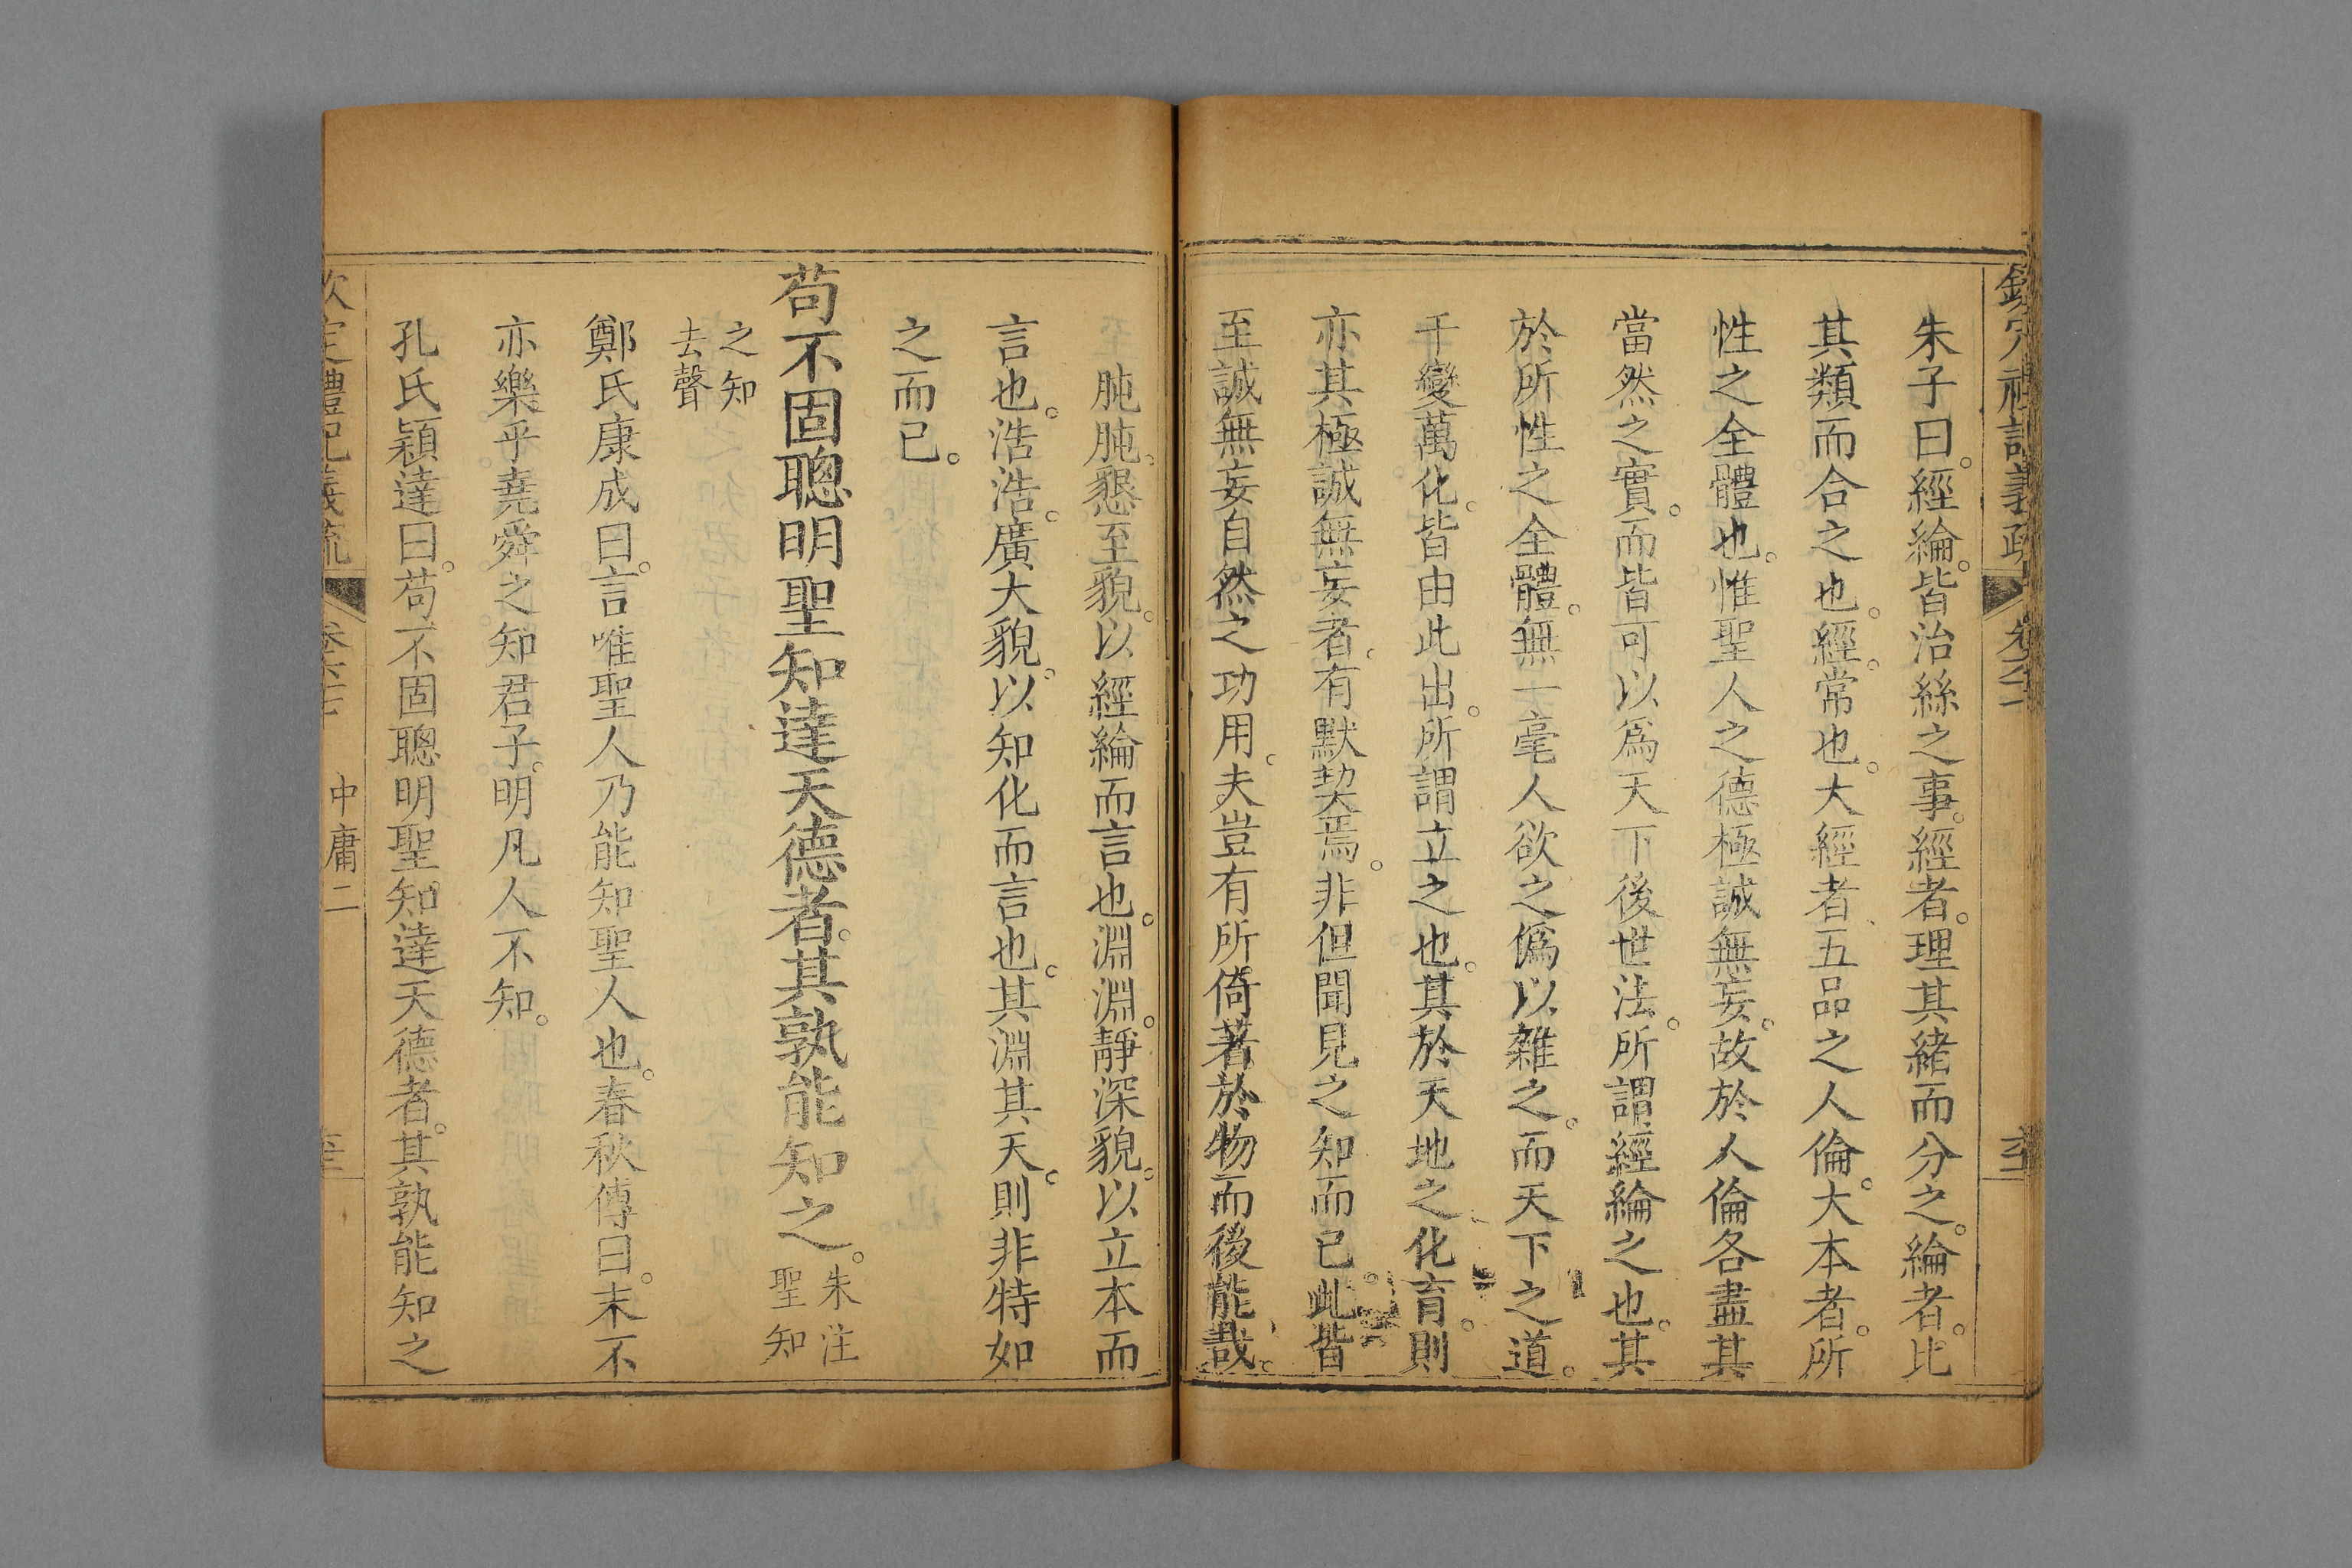 欽定禮記義疏 卷六十七
朱子曰。經綸。皆治絲之事。經者。理其緒而分之。綸者。比
其類而合之也。經。常也。大經者五品之人倫。大本者。所
性之全體也。惟聖人之德極誠無妄。故於人倫各盡其
當然之實。而皆可以爲天下後世法。所謂經綸之也。其
於所性之全體。無一毫人欲之僞以雜之。而天下之道。
千變萬化。皆由此出。所謂立之也。其於天地之化育。則
亦其極誠無妄者。有默契焉。非但聞見之知而已。此皆
至誠無妄自然之功用。夫豈有所倚著於物而後能哉。
肫肫。懇至貌。以經綸而言也。淵淵。靜深貌。以立本而
言也。浩浩。廣大貌。以知化而言也。其淵其天。則非特如
之而已。
苟不固聰明聖知達天德者。其孰能知之。朱注聖知
之知去聲
鄭氏康成曰。言唯聖人乃能知聖人也。春秋傳曰。末不
亦樂乎。堯舜之知君子。明凡人不知。
孔氏穎達曰。苟不固聰明聖知達天德者。其孰能知之
欽定禮記義疏 卷六十七 中庸二